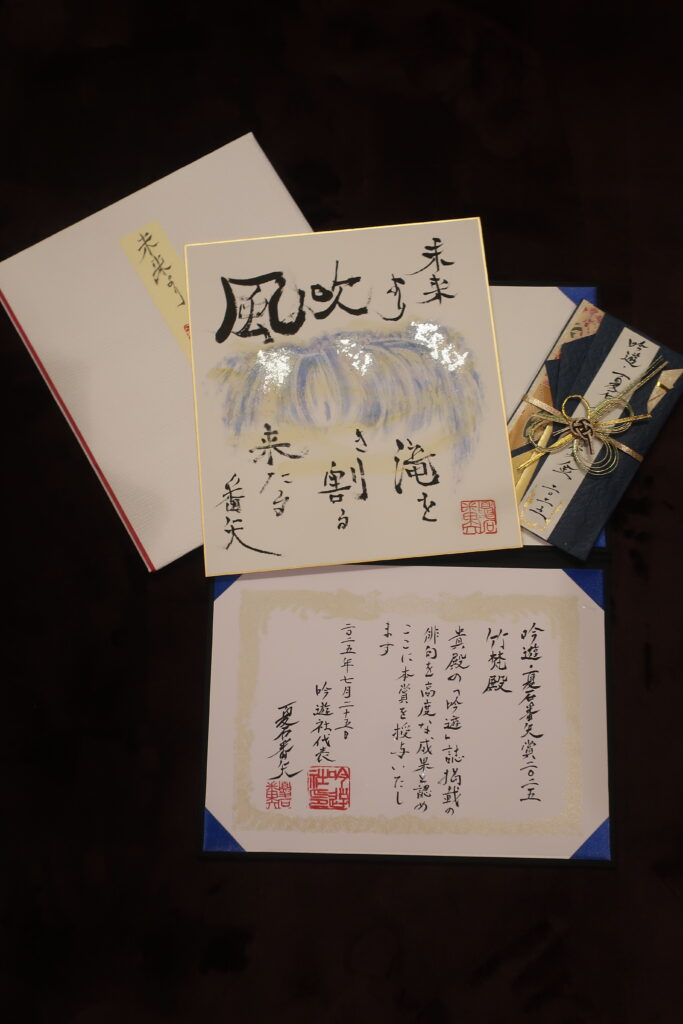 未来より
未来より
風吹
滝を
き割る
来たる
番矢
吟遊・夏石
賞 二〇二五
吟遊・夏石番矢賞二〇二五
竹梵殿
貴殿の「吟遊」誌掲載の
俳句を高度な成果と認め
ここに本賞を授与いたし
ます
二〇二五年七月二十五日
吟遊社代表
夏石番矢
吟遊社之印